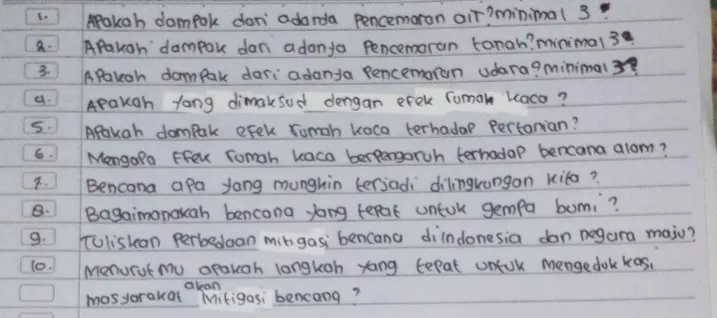 1. Apakah dampak dari adanya Pencemaran air? minimal 3?
2. Apakah dampak dari adanya Pencemaran tanah? minimal 3?
3. Apakah dampak dari adanya Pencemaran udara? minimal 3?
4. Apakah yang dimaksud dengan efek rumah kaca?
5. Apakah dampak efek rumah kaca terhadap Pertanian?
6. Mengapa Efek rumah kaca berpengaruh terhadap bencana alam?
7. Bencana apa yang mungkin terjadi dilingkungan kita?
8. Bagaimanakah bencana yang tepat untuk gempa bumi?
9. Tuliskan Perbedaan Mitigasi bencana diindonesia dan negara maju?
10. Menurutmu apakah langkah yang tepat untuk mengedukkasi
masyarakat akan Mitigasi bencana?